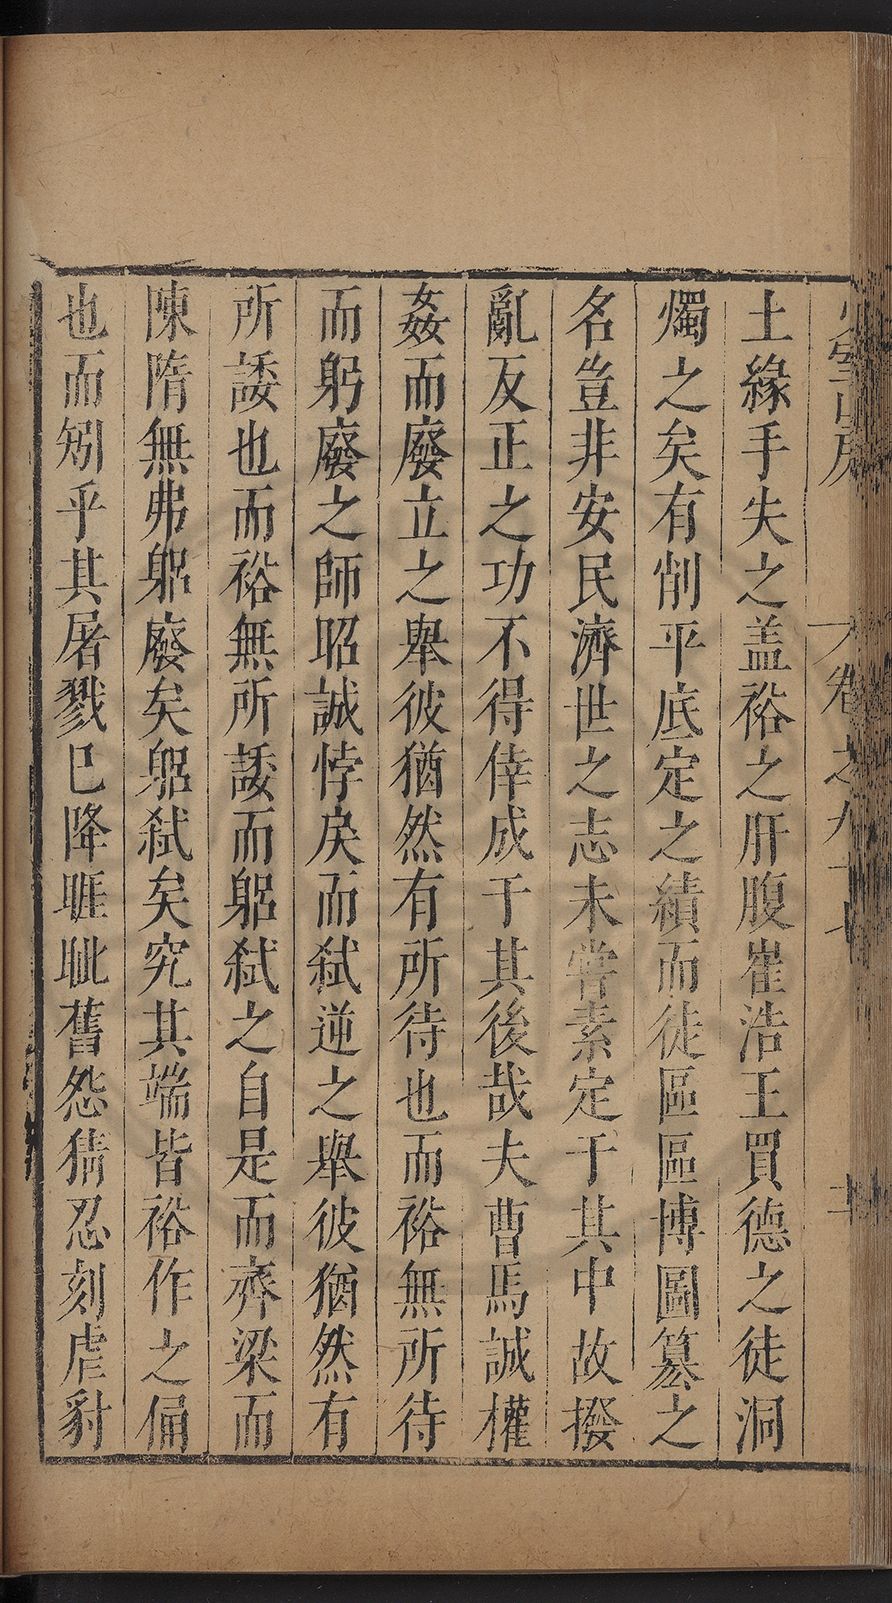 少室山房 卷之九十七
土緣手失之盖裕之肝腹崔浩王買德之徒洞
燭之矣有削平底定之績而徒區區博圖篡之
名豈非安民濟世之志未嘗素定于其中故撥
亂反正之功不得倖成于其後哉夫曹馬誠權
姦而廢立之舉彼猶然有所待也而裕無所待
而躬廢之師昭誠悖戾而弒逆之舉彼猶然有
所諉也而裕無所諉而躬弒之自是而齊梁而
陳隋無弗躬廢矣躬弒矣究其端皆裕作之俑
也而矧乎其屠戮已降睚眦舊怨猜忍刻虐豺